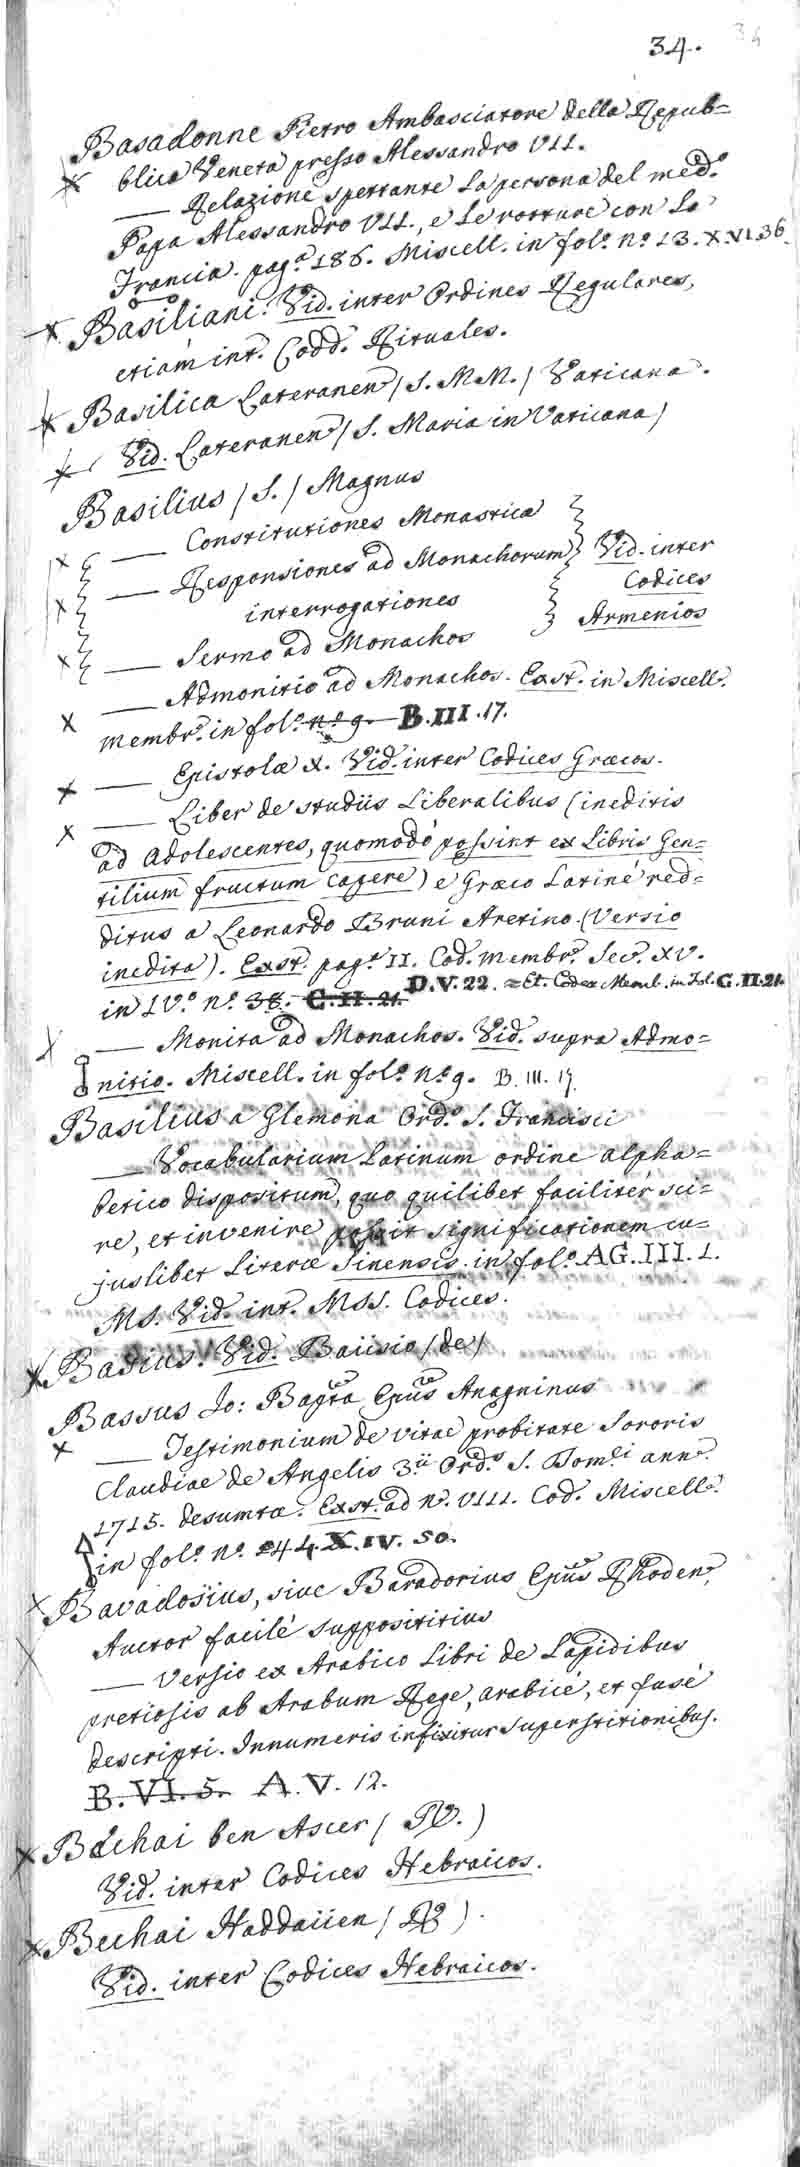 34.
34
Basadonne Pietro Ambasciatore della Repub=
blica Veneta presso Alessandro VII.
— Relazione spettante la persona del med.o
Papa Alessandro VII., e le rotture con la
Francia. pag.a 186. Miscell. in fol.o n.o 13. X.VI.36.
Basiliani. Vid. inter Ordines Regulares,
etiam int. Codd. Rituales.
Basilica Lateranen/ S. M.M./ Vaticana.
Vid. Lateranen/ S. Maria in Vaticana/
Basilius / S. / Magnus
— Constitutiones Monasticæ
— Responsiones ad Monachorum Vid. inter
interrogationes Codices
— Sermo ad Monachos Armenios
— Admonitio ad Monachos. Exst. in Miscell.
membr. in fol.o n.o 9. B.III.17.
— Epistolæ x. Vid. inter Codices Græcos.
— Liber de studiis Liberalibus (ineditis
ad Adolescentes, quomodò possint ex Libris Gen=
tilium fructum capere) e Græco Latinè red=
ditus a Leonardo Bruni Aretino. (Versio
inedita). Exst. pag.a II. Cod. membr. Sec. XV.
in IV.o n.o 38. C.II.21. D.V.22. = Et. Codex Memb. in fol. C.II.21.
— Monita ad Monachos. Vid. supra Admo=
nitio. Miscell. in fol.o n.o 9. B.III.17
Basilius a Glemona Ord.s S. Francisci
— Vocabularium Latinum ordine alpha=
betico dispositum, quo quilibet facilitèr sci=
re, et invenire possit significationem cu=
juslibet Literæ Sinensis. in fol.o AG.III.1.
MS. Vid. int. MSS. Codices.
Basius. Vid. Baiisio /de/
Bassus Jo: Bapta Epus Anagninus
— Testimonium de vitae probitate Sororis
Claudiae de Angelis 3.ii Ord.s S. Dom.ci ann.
1715. desumtæ. Exst. ad n. VIII. Cod. Miscell.
in fol.o n.o 244. X.IV.50.
Bavadosius, sive Baradorius Epus Rhoden.
Auctor facilè supposititius
— Versio ex Arabico Libri de Lapidibus
pretiosis ab Arabum Rege, arabicè, et fusè
descripti. Innumeris inficitur superstitionibus.
B.VI.5. A.V.12.
Bechai ben Ascer / R. /
Vid. inter Codices Hebraicos.
Bechai Haddaiien / R. ).
Vid. inter Codices Hebraicos.